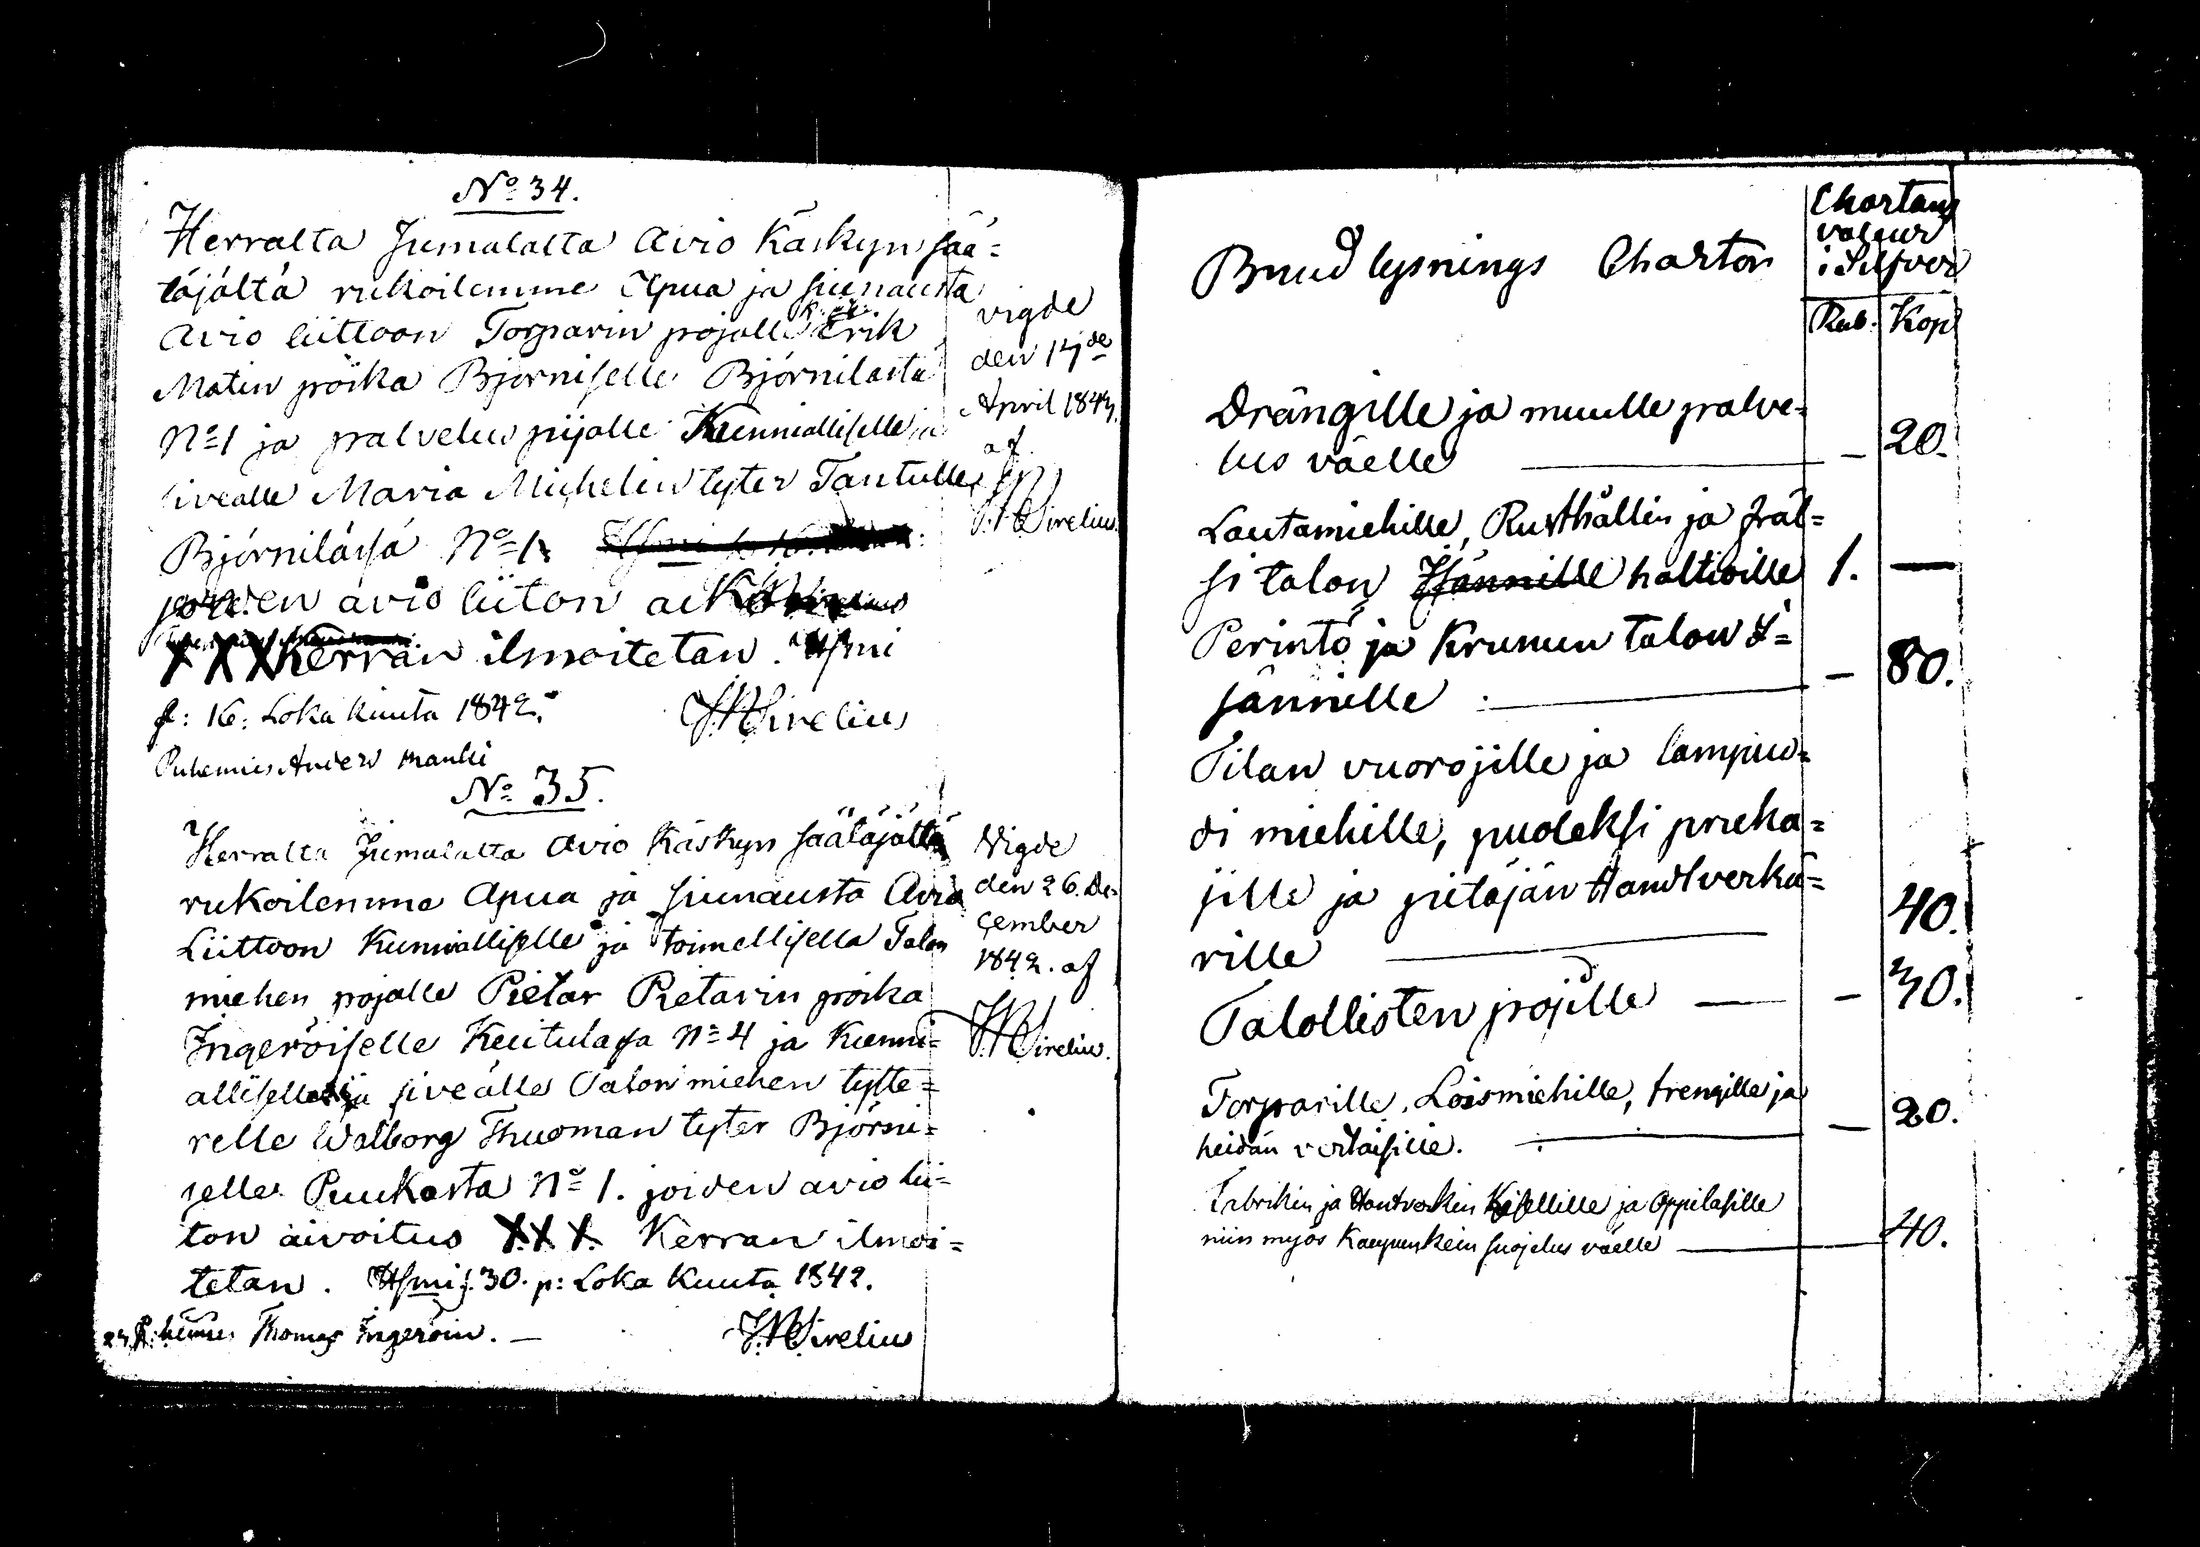 No 34.
Herralta Jumalalta Avio Käskyn sää=
täjältä rukoilemme Apua ja siunausta
Avio liittoon Torparin pojalle Erik
Matin poika Björniselle Björnilästä
No 1 ja palvelus pijalle Kunnialliselle ja
siveälle Maria Michelin tyter Tantulle
Björnilässä No 1.
joiden avio liiton
XXX Kerran ilmoitetan. Hsmi
p: 16: Loka kuuta 1842.
JWSirelius
Puhemies Anders Manki
vigde
den 17de
April 1843.
af
JWSirelius.
No 35.
Herralta Jumalalta Avio Käskyn säätäjältä
rukoilemme Apua ja siunausta Avio
Liittoon Kunnialliselle ja toimellisella Talon
miehen pojalle Pietar Pietarin poika
Ingeröiselle Keitulassa No 4 ja Kunni=
alliselle ja siveälle Talon miehen tytte=
relle Walborg Thuoman tyter Björni=
selle Puukasta No 1. joiden avio lii=
ton aivoitus XXX. Kerran ilmoi=
tetan. Hsmi 30. p: Loka Kuuta 1842.
Puhemies Thomas Ingeröin. —
JWSirelius
Vigde
den 26. De=
cember
1842. af
JWSirelius.
Brud lysnings Charton
Chartans
valeur
i Silfver
Rub. Kop
Drängille ja muulle palve=
lus väelle — 20.
Lautamiehille, Rusthållin ja fräl=
si talon Isännille haltioille 1. —
Perintö ja Krunun talon I=
sännille : — 80.
Tilan vuorojille ja lampuo=
di miehille, puoleksi prieka=
jille ja pitäjän Handtverkä=
rille 40.
Talollisten pojille — — 30.
Torparille, Loismiehille, trengille ja
heidän vertaisille. — 20.
Fabrikin ja Hantverkin Kisellille ja Oppilasille
niin myös Kaupunkein suojelus väelle — 40.